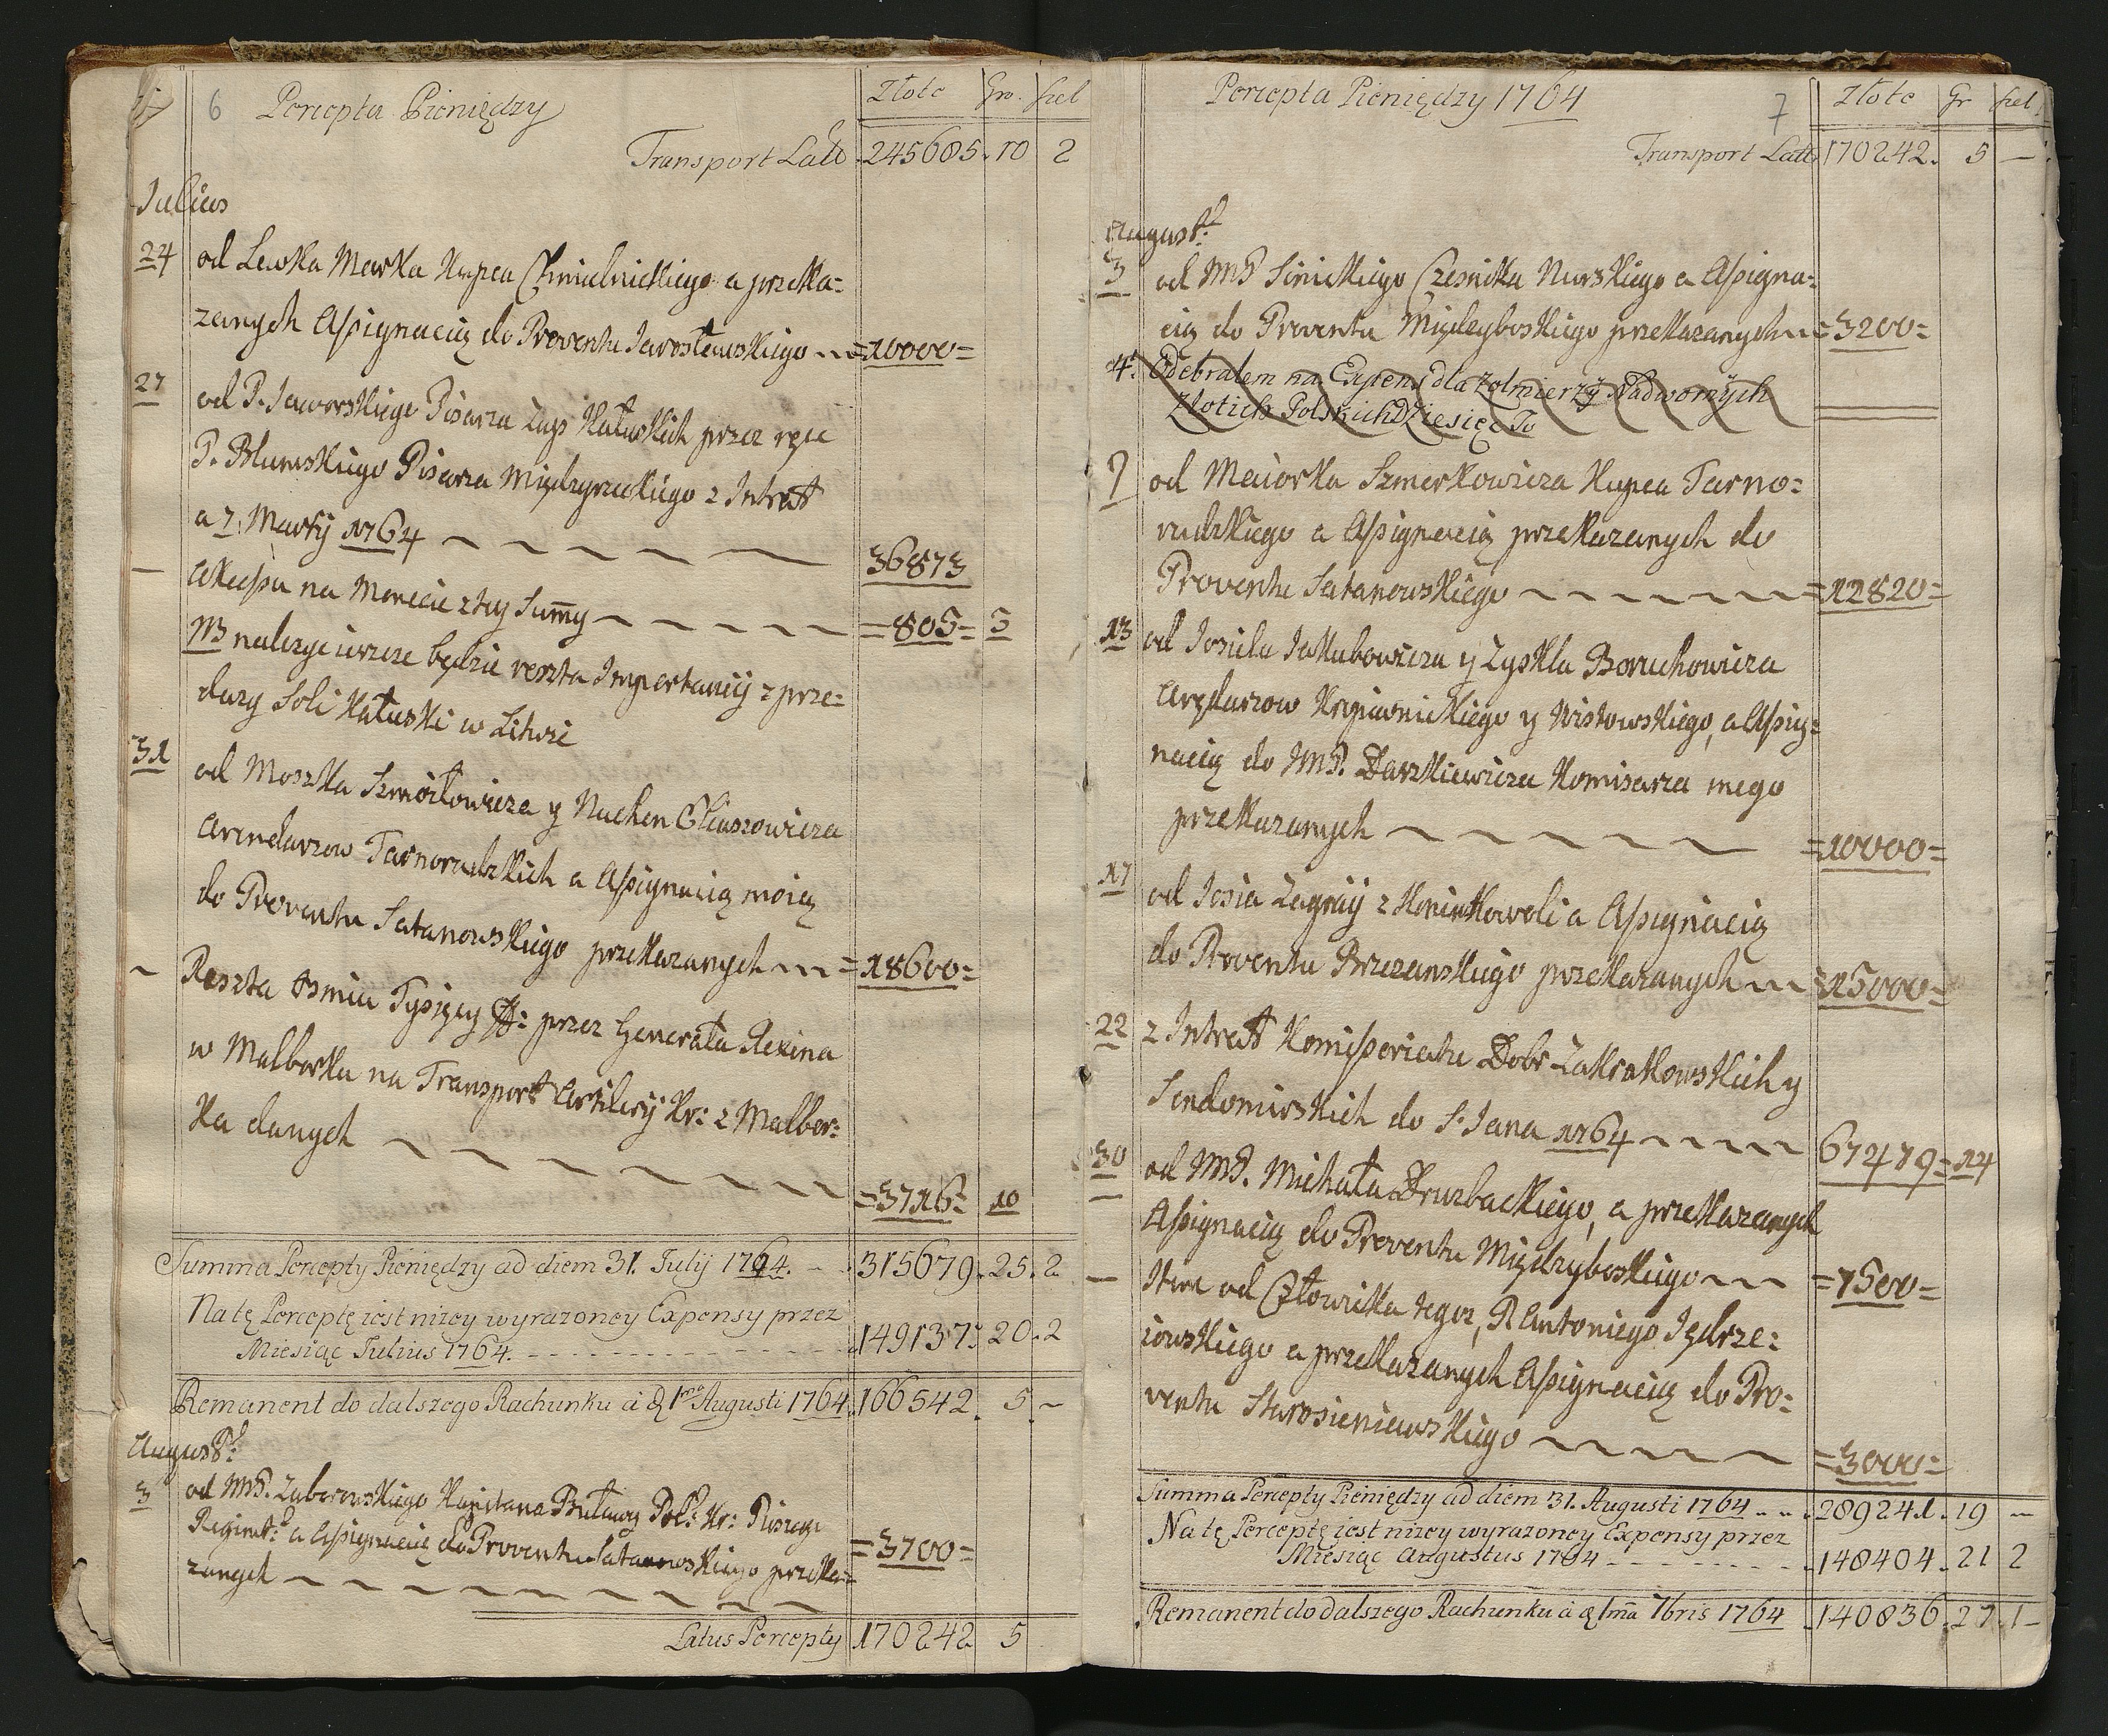 6 Percepta Pieniędzy Złote Gro. szel
Transport Latt 245685. 10 2
Julius
24 od Lewka Merka Kupca Chmielnickiego a przeka:
zanych Assignacią do Proventu Jarosławskiego =10000=
27 od P. Jaworskiego Pisarza Zup Kałuskich przez ręce
P. Blumskiego Pisarza Międzyrzeckiego z Intrat
a 7. Martij 1764 36873
Akcessu na Monecie z tey Summy =805= 5
NB należyć ieszcze będzie reszta Importancij z prze=
daży Soli Kałuski w Litwie
31 od Moszka Szmoiłowicza y Nuchen Eliaszowicza
Arendarzow Tarnorudzkich a Assignacią moią
do Proventu Satanowskiego przekazanych =18600=
Reszta osmiu Tysięcy przez Generała Rexina
w Malborku na Transport Artilerij Kr: z Malbor:
ka danych =3716= 10
Summa Percepty Pieniędzy ad diem 31. Julij 1764. 315679. 25. 2.
Na tę Perceptę iest nizey wyrazoney Expensy przez
Miesiąc Julius 1764. 149137. 20. 2
Remanent do dalszego Rachunku à d 1ma Augusti 1764. 166542. 5. ~
August:
3 od JMP. Zaborowskiego Kapitana Buławy Pol: Kr: Piszego
Regimt: a Assignacią do Proventu Satanowskiego przeka=
zanych =3700=
Latus Percepty 170242 5
Percepta Pieniędzy 1764 7 Złote Gr szel
Transport Latt 170242. 5 –
August:
3 od JMP Sinickiego Czesnika Nurskiego a Assigna:
cią do Proventu Międzyboskiego przekazanych =3200=
4. Odebrałem na Expens dla Zolnierzy Nadwornych
Złotich Polskich Dziesięc To
7 od Meiorka Szmerkowicza Kupca Tarno:
rudzkiego a Assignacią przekazanych do
Proventu Satanowskiego =12820=
13 od Josiela Jakubowicza y Zyskla Boruchowicza
Arędarzow Krzpiwnickiego y Kistowskiego, a Assig:
nacią do JMP. Darzkiewicza Komisarza mego
przekazanych =10000=
17 od Josia Zagnij z Koninkowoli a Assignacią
do Proventu Brzezanskiego przekazanych =15000=
22 z Intrat Komissoriatu Dobr Zakrakowskich y
Sendomirskich do S. Jana 1764 67479= 14
30 od JMP. Michała Druzbackiego, a przekazanych
Assignacią do Proventu Międzyboskiego =7500=
Item od Człowieka tegoz, P. Antoniego Jędrze:
iowskiego a przekazanych Assignacią do Pro:
ventu Starosieniawskiego =3000=
Summa Percepty Pieniędzy ad diem 31. Augusti 1764 289241. 19 –
Na tę Perceptę iest nizey wyrazoney Expensy przez
Miesiąc Augustus 1764 148404. 21 2
Remanent do dalszego Rachunku à d 1ma 7bris 1764 140836. 27. 1 –